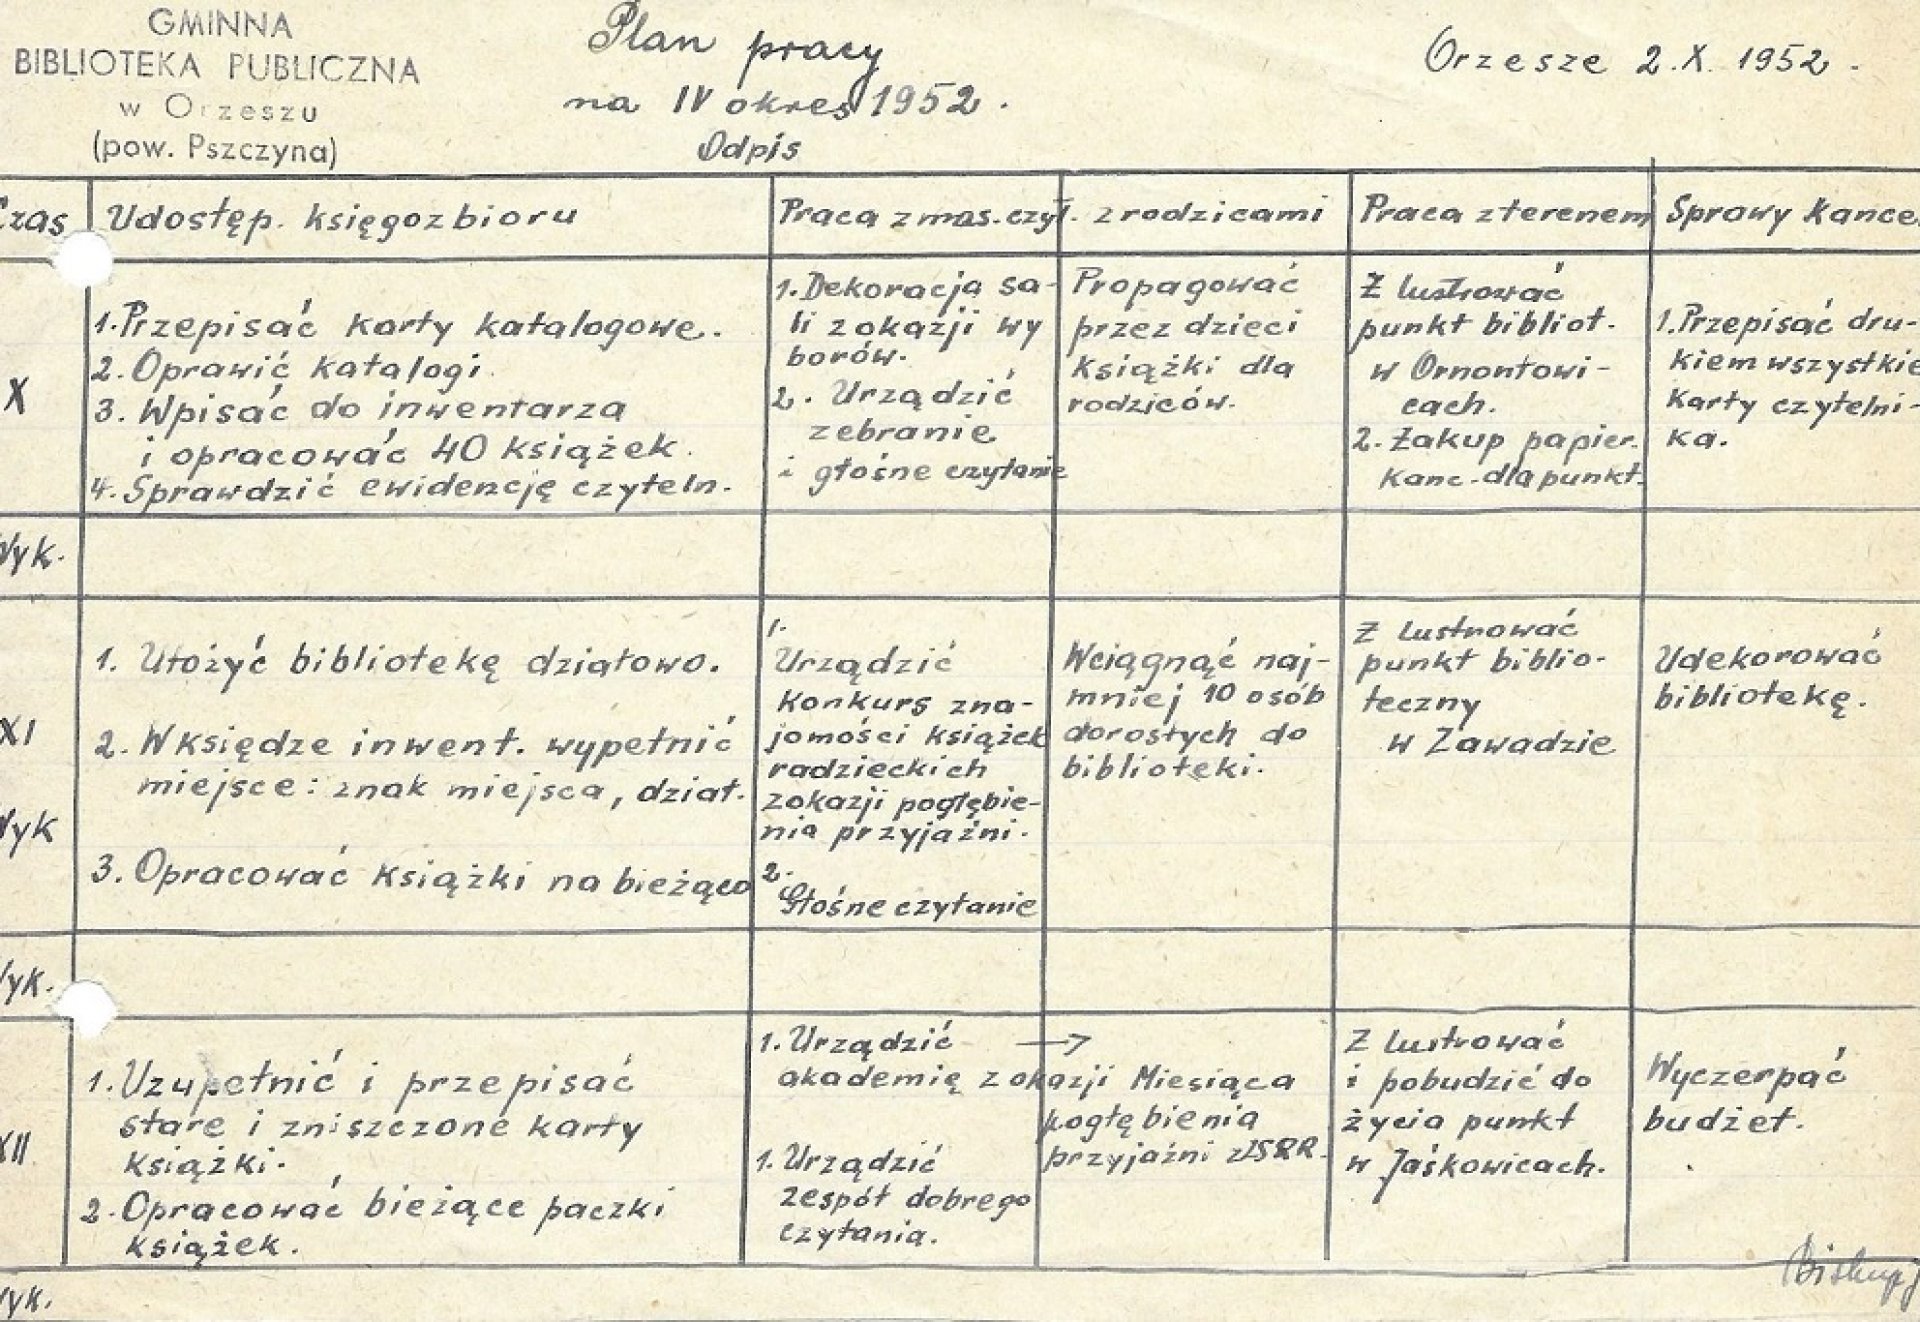 GMINNA
BIBLIOTEKA PUBLICZNA
w Orzeszu
(pow. Pszczyna)
Plan pracy
na IV okres 1952.
Odpis
Orzesze 2.X. 1952.
Czas
Udostęp. księgozbioru
Praca z mas. czyt.
z rodzicami
Praca z terenem
Sprawy kance
X
1. Przepisać karty katalogowe.
2. Oprawić katalogi.
3. Wpisać do inwentarza
i opracować 40 książek.
4. Sprawdzić ewidencję czyteln.
1. Dekoracja sa-
li z okazji wy
borów.
2. Urządzić
zebranie
i głośne czytanie
Propagować
przez dzieci
książki dla
rodziców.
Z lustrować
punkt bibliot.
w Ornontowi-
cach.
2. Zakup papier.
kanc. dla punkt.
1. Przepisać dru-
kiem wszystkie
karty czytelni-
ka.
Wyk.
XI
Wyk
1. Ułożyć bibliotekę działowo.
2. W księdze inwent. wypełnić
miejsce: znak miejsca, dział.
3. Opracować książki na bieżąco
1.
Urządzić
konkurs zna-
jomości książek
radzieckich
z okazji pogłębie-
nia przyjaźni.
2.
Głośne czytanie
Wciągnąć naj-
mniej 10 osób
dorosłych do
biblioteki.
Z lustrować
punkt biblio-
teczny
w Zawadzie
Udekorować
bibliotekę.
Wyk.
XII
1. Uzupełnić i przepisać
stare i zniszczone karty
książki.
2. Opracować bieżące paczki
książek.
1. Urządzić →
akademię z okazji Miesiąca
pogłębienia
przyjaźni z ZSRR.
1. Urządzić
zespół dobrego
czytania.
Z lustrować
i pobudzić do
życia punkt
w Jaśkowicach.
Wyczerpać
budżet.
Wyk.